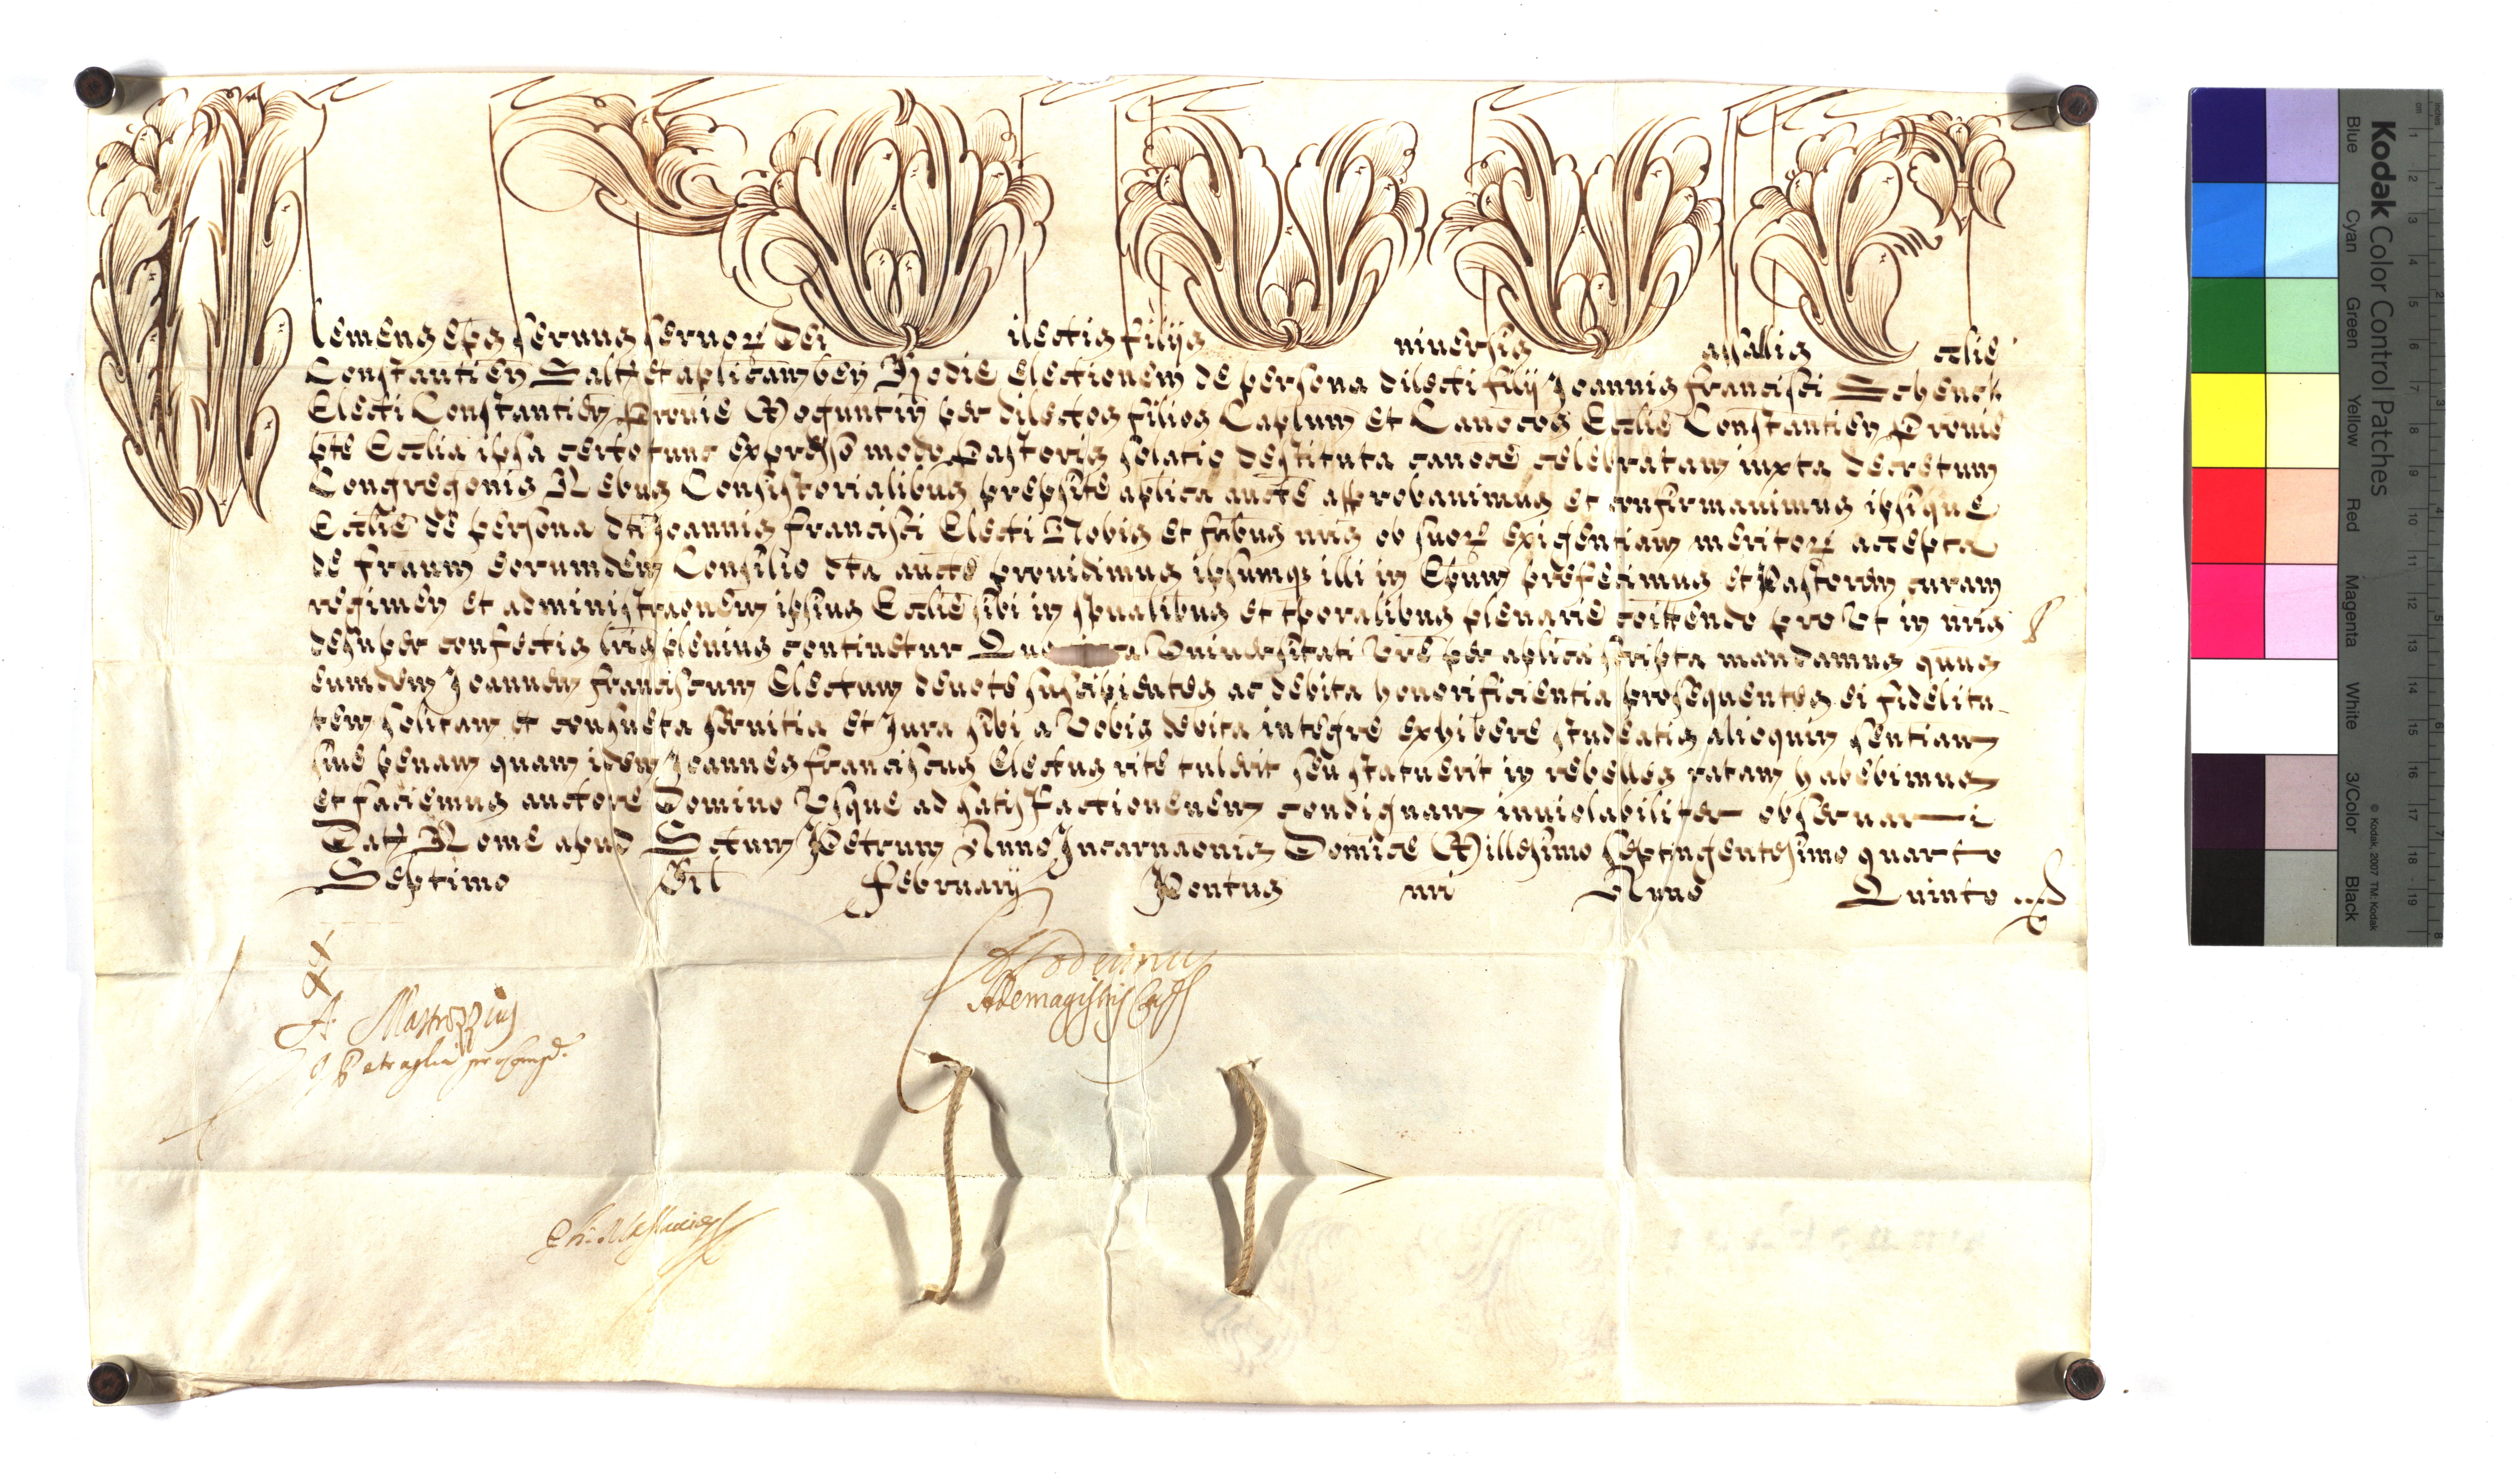 Clemens Eps servus servor Dei Dilectis filijs Universis Vasallis Ecclie
Constantien Salt et aplicam ben Hodie Electionem de persona dilecti filij Joannis Francisci Schenck
Electi Constantien Provie Moguntin per dilectos filios Caplum et Canocos Ecclie Constantien Provie
pte Ecclia ipsa certo tunc expresso modo Pastoris solatio destituta canoce celebratam iuxta decretum
Congregonis Rebus Consistorialibus preposite aplica aucte approbavimus et confirmavimus ipsique
Ecclie de persona dti Joannis Francisci Electi Nobis et fribus nris ob suor exigentiam meritor accepta
de fratrum eorumdem Consilio dta aucte providimus ipsumqs illi in Epum prefecimus et Pastorem curam
regimen et administraonem ipsius Ecclie sibi in spualibus et tporalibus plenarie coittendo pro Ut in nris
desuper confectis lris plenius continetur Universitati Vre per aplica scripta mandamus qtnus
eumdem Joannem Franciscum Electum devote suscipientes ac debita honorificientia prosequentes ei fidelita
tem solitam et consueta servitia et Jura sibi a Vobis debita integre exhibere studeatis alioquin sentiam
sive penam quam idem Joannes Franciscus Electus rite tulerit seu statuerit in rebelles ratam habebimus
et faciemus auctore Domino Usque ad satisfactionenem condignam inviolabiliter observari
Dat Rome apud Sctum Petrum Anno Incarnaonis Domice Millesimo septingentesimo quarto
Septimo Kal Februarij Pontus nri Anno Quinto
A. Mastrozzius
Petraglia
Kodak Color Control Patches
Blue Cyan Green Yellow Red Magenta White 3/Color Black
© Kodak, 2007 TM: Kodak
cm 1 2 3 4 5 6 7 8 9 10 11 12 13 14 15 16 17 18 19
inches 1 2 3 4 5 6 7 8